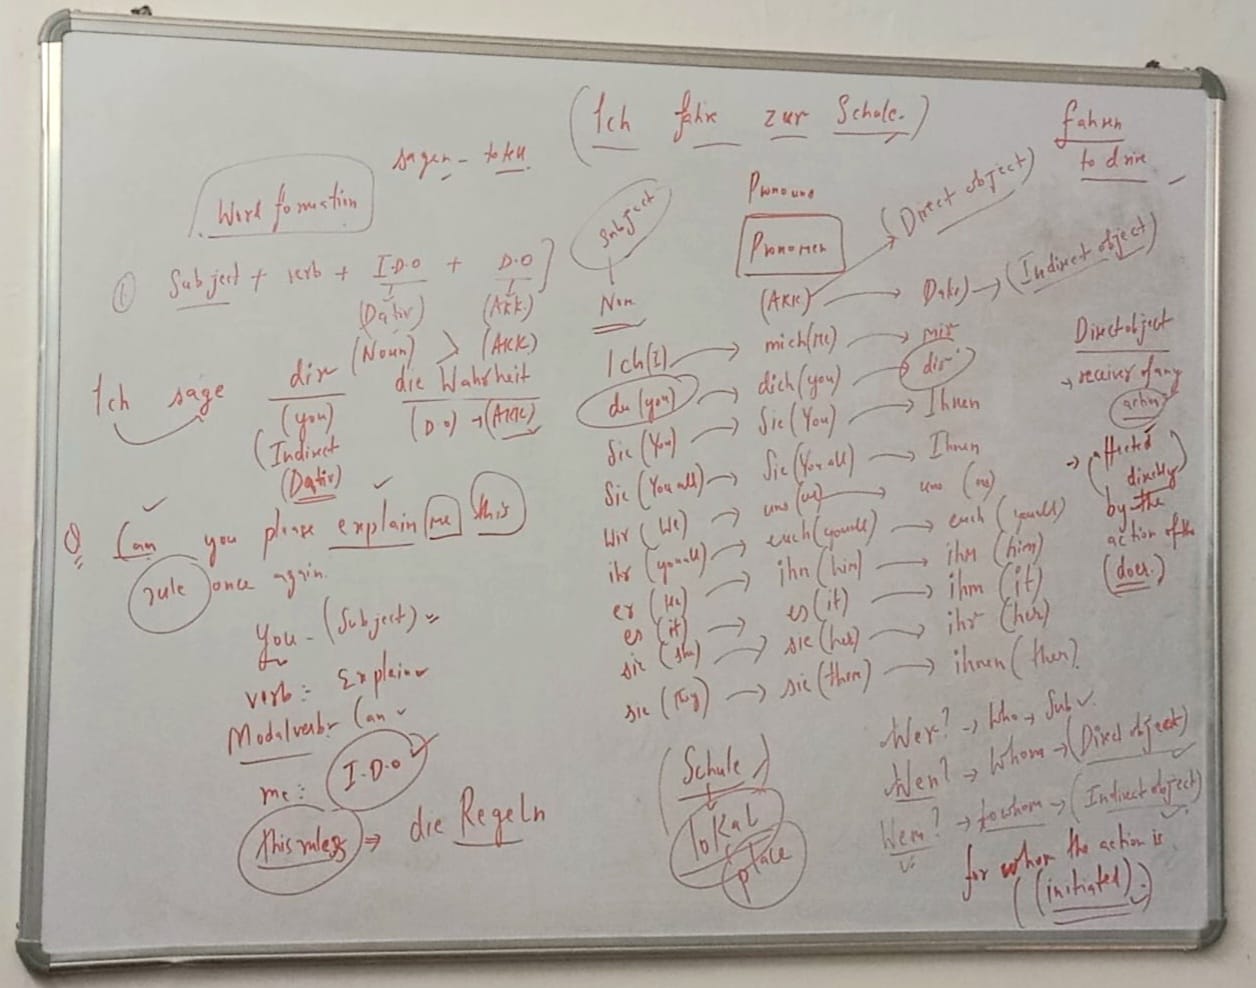 (Ich fahre zur Schule.)
fahren
to drive
sagen - tell
Word formation
① Subject + verb + I.D.O + D.O
(Dativ) (Akk.)
(Noun) > (Akk)
Ich sage dir die Wahrheit
(you) (D.O) → (Akk)
(Indirect
(Dativ)
Q Can you please explain me this
rule once again.
you - (Subject)
verb: Explain
Modalverb - Can
me: I.D.O
this rules ⇒ die Regeln
Subject
Nom
Pronouns
Pronomen
(Direct object)
(Akk) → Dativ) → (Indirect object)
Ich (I) → mich (me) → mir
du (you) → dich (you) → dir
Sie (You) → Sie (You) → Ihnen
Sie (You all) → Sie (You all) → Ihnen
Wir (We) → uns (us) → uns (us)
ihr (you all) → euch (you all) → euch (you all)
er (He) → ihn (him) → ihm (him)
es (it) → es (it) → ihm (it)
sie (she) → sie (her) → ihr (her)
sie (They) → sie (them) → ihnen (them)
Direct object
→ receiver of any
action
→ (affected
directly)
by the
action of the
(doer.)
(Schule)
lokal
place
Wer? → Who → Sub
Wen? → Whom → (Direct object)
Wem? → to whom → (Indirect object)
for whom the action is
((initiated).)